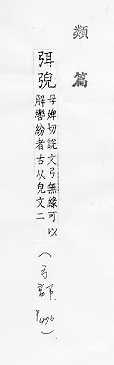 類篇
弭𢏺
母婢切說文弓無緣可以
解轡紛者古从兒文二
(弓部 P.476)